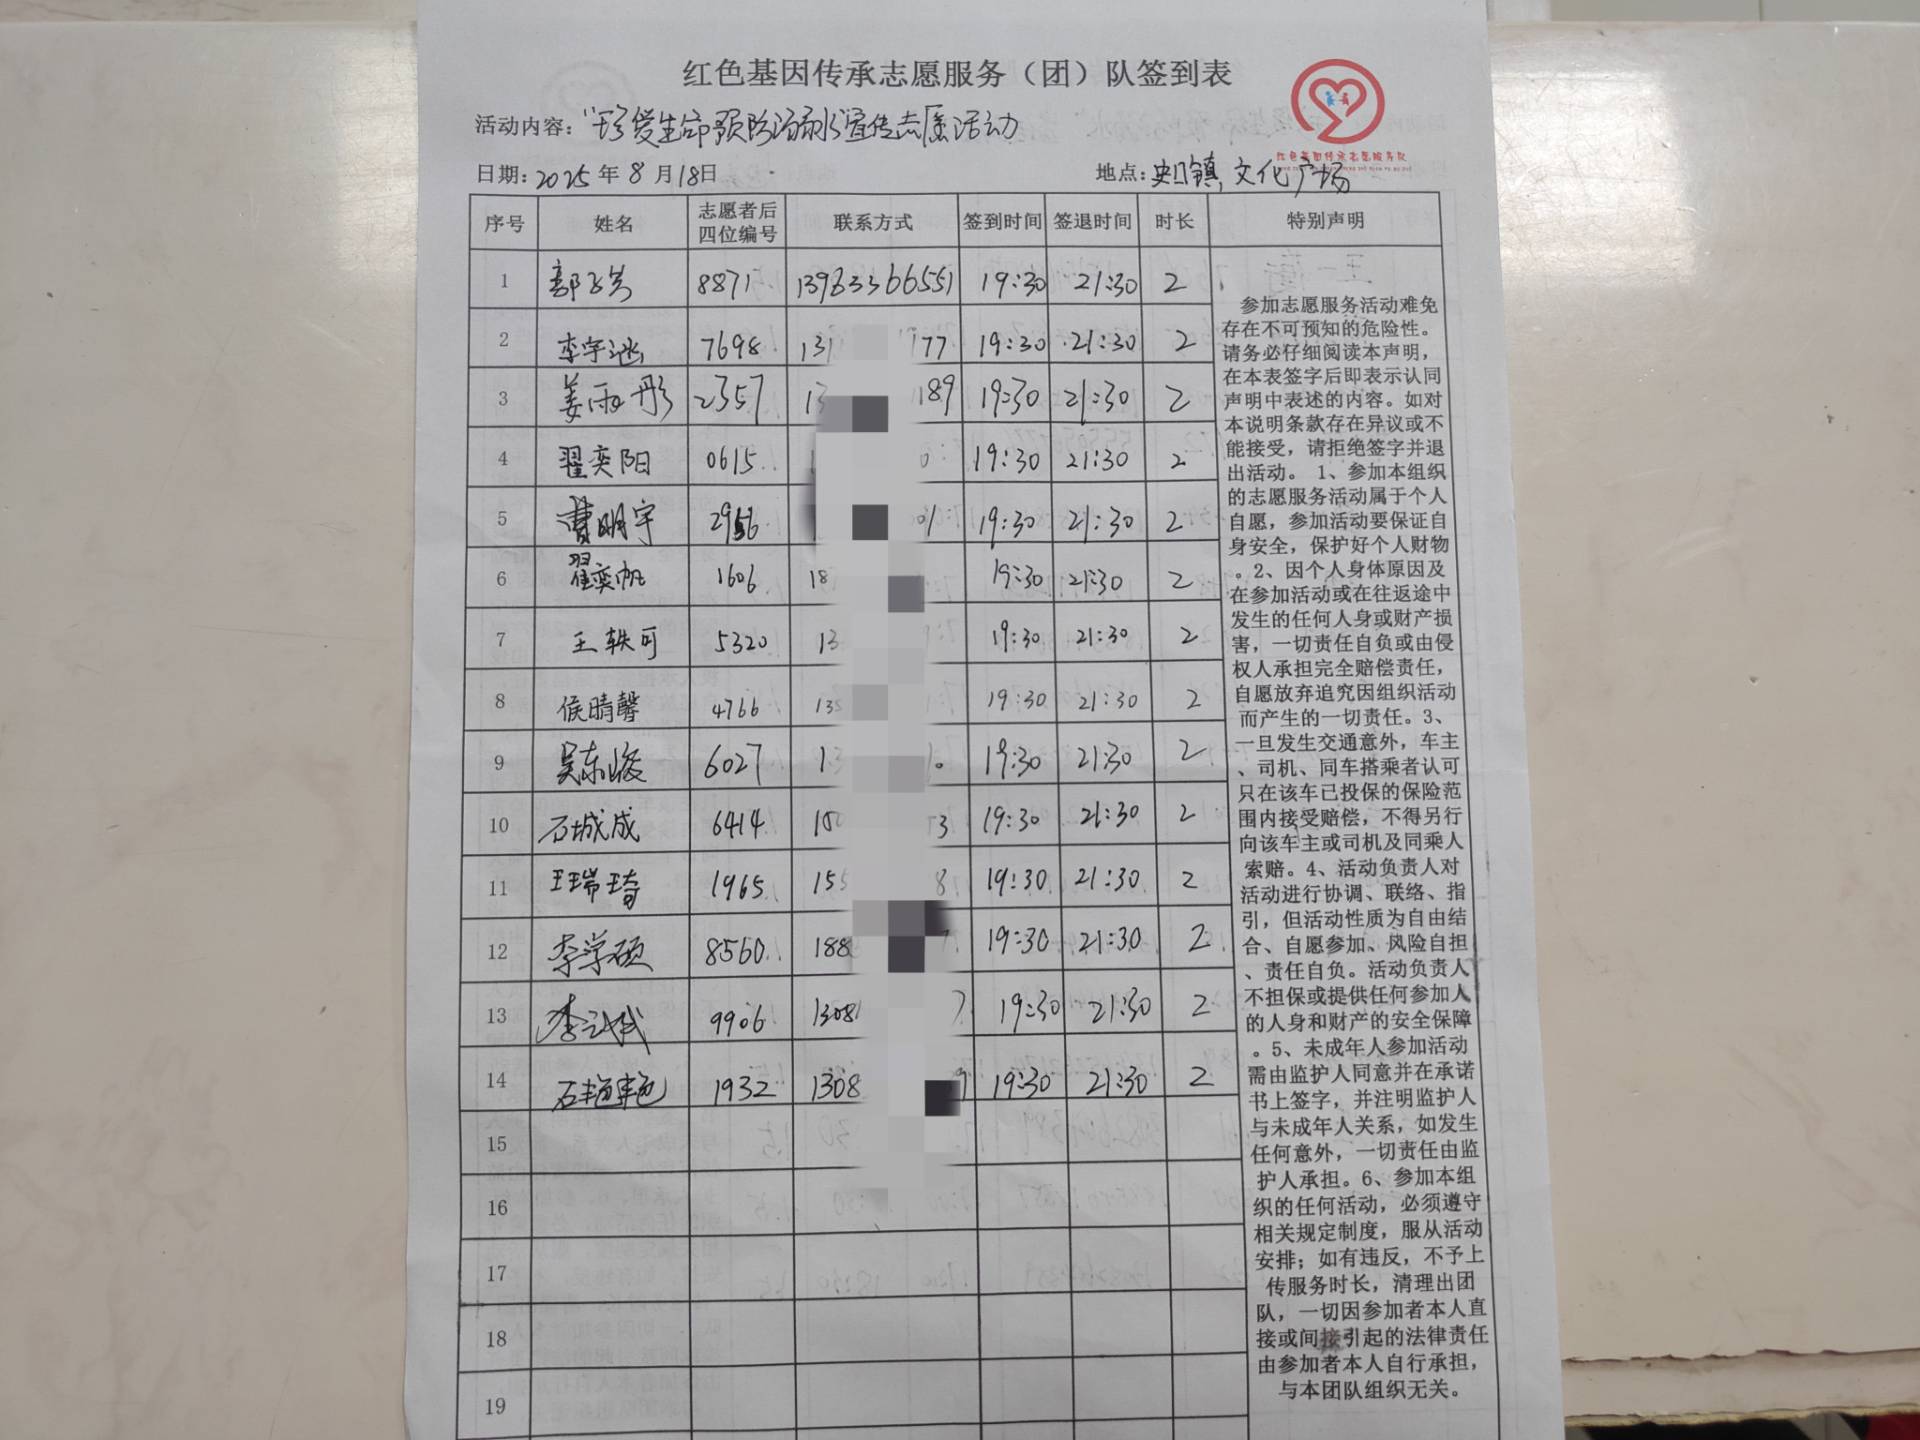 红色基因传承志愿服务（团）队签到表
活动内容：“珍爱生命预防溺水宣传志愿活动
日期：2025年8月18日 地点：史口镇文化广场
红色基因传承志愿服务队
序号 姓名 志愿者后四位编号 联系方式 签到时间 签退时间 时长 特别声明
1 8871 13963366551 19:30 21:30 2
2 李宇 7698 131 177 19:30 21:30 2
3 姜雨彤 2357 13 189 19:30 21:30 2
4 翟奕阳 0615 0 19:30 21:30 2
5 曹明宇 2956 01 19:30 21:30 2
6 翟奕帆 1606 18 19:30 21:30 2
7 王轶可 5320 13 19:30 21:30 2
8 侯晴馨 4766 135 19:30 21:30 2
9 吴东俊 6027 13 0 19:30 21:30 2
10 石城成 6414 150 3 19:30 21:30 2
11 王瑞琦 1965 155 8 19:30 21:30 2
12 李学硕 8560 188 7 19:30 21:30 2
13 李 9906 1308 7 19:30 21:30 2
14 石艳艳 1932 1308 9 19:30 21:30 2
15
16
17
18
19
参加志愿服务活动难免
存在不可预知的危险性。
请务必仔细阅读本声明，
在本表签字后即表示认同
声明中表述的内容。如对
本说明条款存在异议或不
能接受，请拒绝签字并退
出活动。1、参加本组织
的志愿服务活动属于个人
自愿，参加活动要保证自
身安全，保护好个人财物
。2、因个人身体原因及
在参加活动或在往返途中
发生的任何人身或财产损
害，一切责任自负或由侵
权人承担完全赔偿责任，
自愿放弃追究因组织活动
而产生的一切责任。3、
一旦发生交通意外，车主
、司机、同车搭乘者认可
只在该车已投保的保险范
围内接受赔偿，不得另行
向该车主或司机及同乘人
索赔。4、活动负责人对
活动进行协调、联络、指
引，但活动性质为自由结
合、自愿参加、风险自担
、责任自负。活动负责人
不担保或提供任何参加人
的人身和财产的安全保障
。5、未成年人参加活动
需由监护人同意并在承诺
书上签字，并注明监护人
与未成年人关系，如发生
任何意外，一切责任由监
护人承担。6、参加本组
织的任何活动，必须遵守
相关规定制度，服从活动
安排；如有违反，不予上
传服务时长，清理出团
队，一切因参加者本人直
接或间接引起的法律责任
由参加者本人自行承担，
与本团队组织无关。